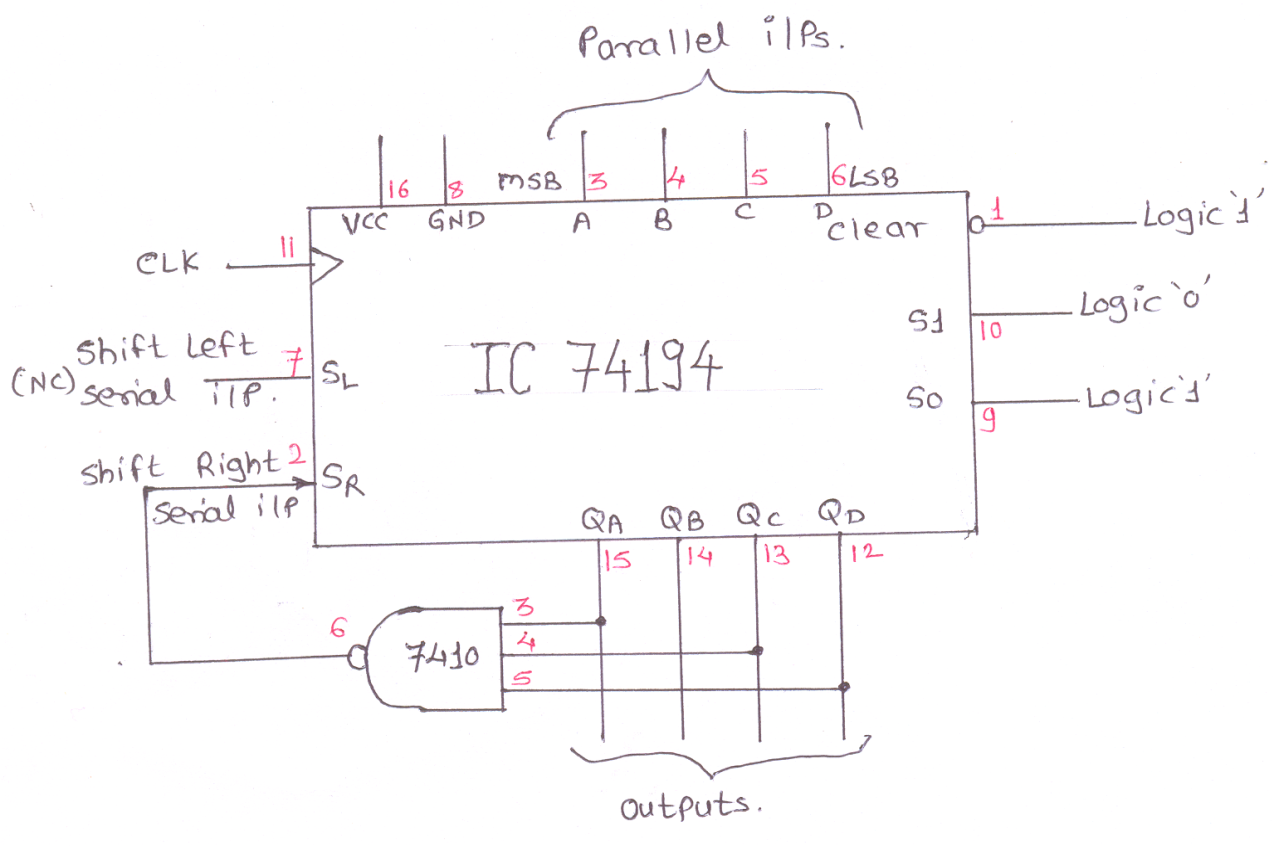 Parallel i/Ps.
16 8 MSB 3 4 5 6 LSB
VCC GND A B C D clear 1 Logic '1'
CLK 11
S1 10 Logic '0'
Shift Left 7 SL
(NC) serial i/P.
IC 74194
S0 9 Logic '1'
Shift Right 2 SR
Serial i/P
QA QB QC QD
15 14 13 12
3
6 7410 4
5
outputs.